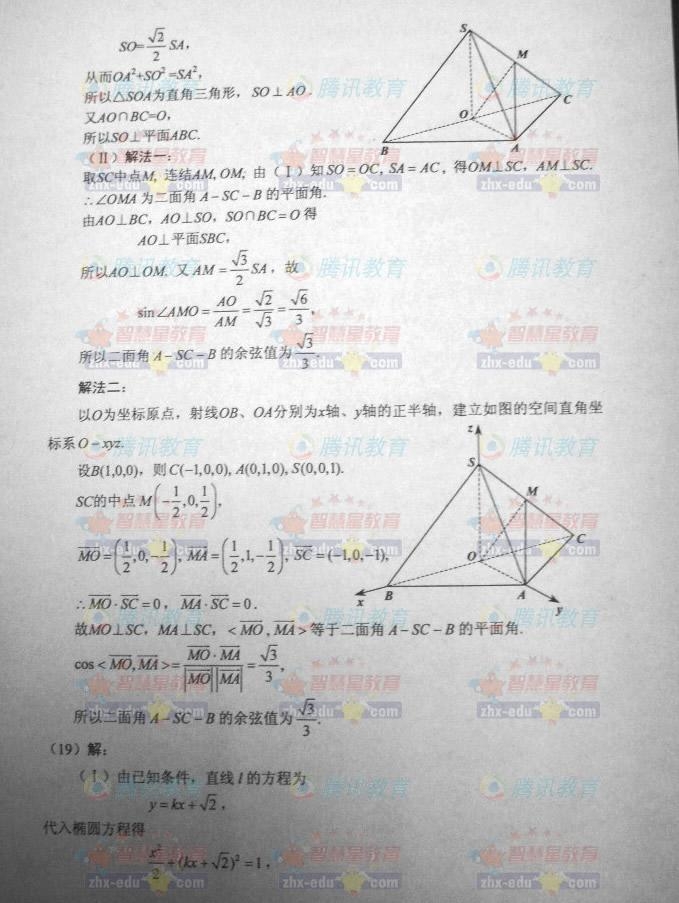 SO=√2/2 SA,
从而OA²+SO²=SA²,
所以△SOA为直角三角形，SO⊥AO.
又AO∩BC=O,
所以SO⊥平面ABC.
（II）解法一：
取SC中点M, 连结AM, OM, 由（I）知SO=OC, SA=AC, 得OM⊥SC, AM⊥SC.
∴∠OMA为二面角A-SC-B的平面角.
由AO⊥BC, AO⊥SO, SO∩BC=O得
AO⊥平面SBC,
所以AO⊥OM. 又AM=√3/2 SA, 故
sin∠AMO=AO/AM=√2/√3=√6/3,
所以二面角A-SC-B的余弦值为√3/3.
解法二：
以O为坐标原点，射线OB、OA分别为x轴、y轴的正半轴，建立如图的空间直角坐
标系O-xyz.
设B(1,0,0), 则C(-1,0,0), A(0,1,0), S(0,0,1).
SC的中点M(-1/2,0,1/2),
MO=(1/2,0,-1/2), MA=(1/2,1,-1/2), SC=(-1,0,-1),
∴MO·SC=0, MA·SC=0.
故MO⊥SC, MA⊥SC, <MO,MA>等于二面角A-SC-B的平面角.
cos<MO,MA>=MO·MA/|MO||MA|=√3/3,
所以二面角A-SC-B的余弦值为√3/3.
（19）解：
（I）由已知条件，直线l的方程为
y=kx+√2,
代入椭圆方程得
x²/2+(kx+√2)²=1,
S
M
C
O
B
A
z
S
M
C
O
B
A
x
y
腾讯教育
智慧星教育
zhx-edu com